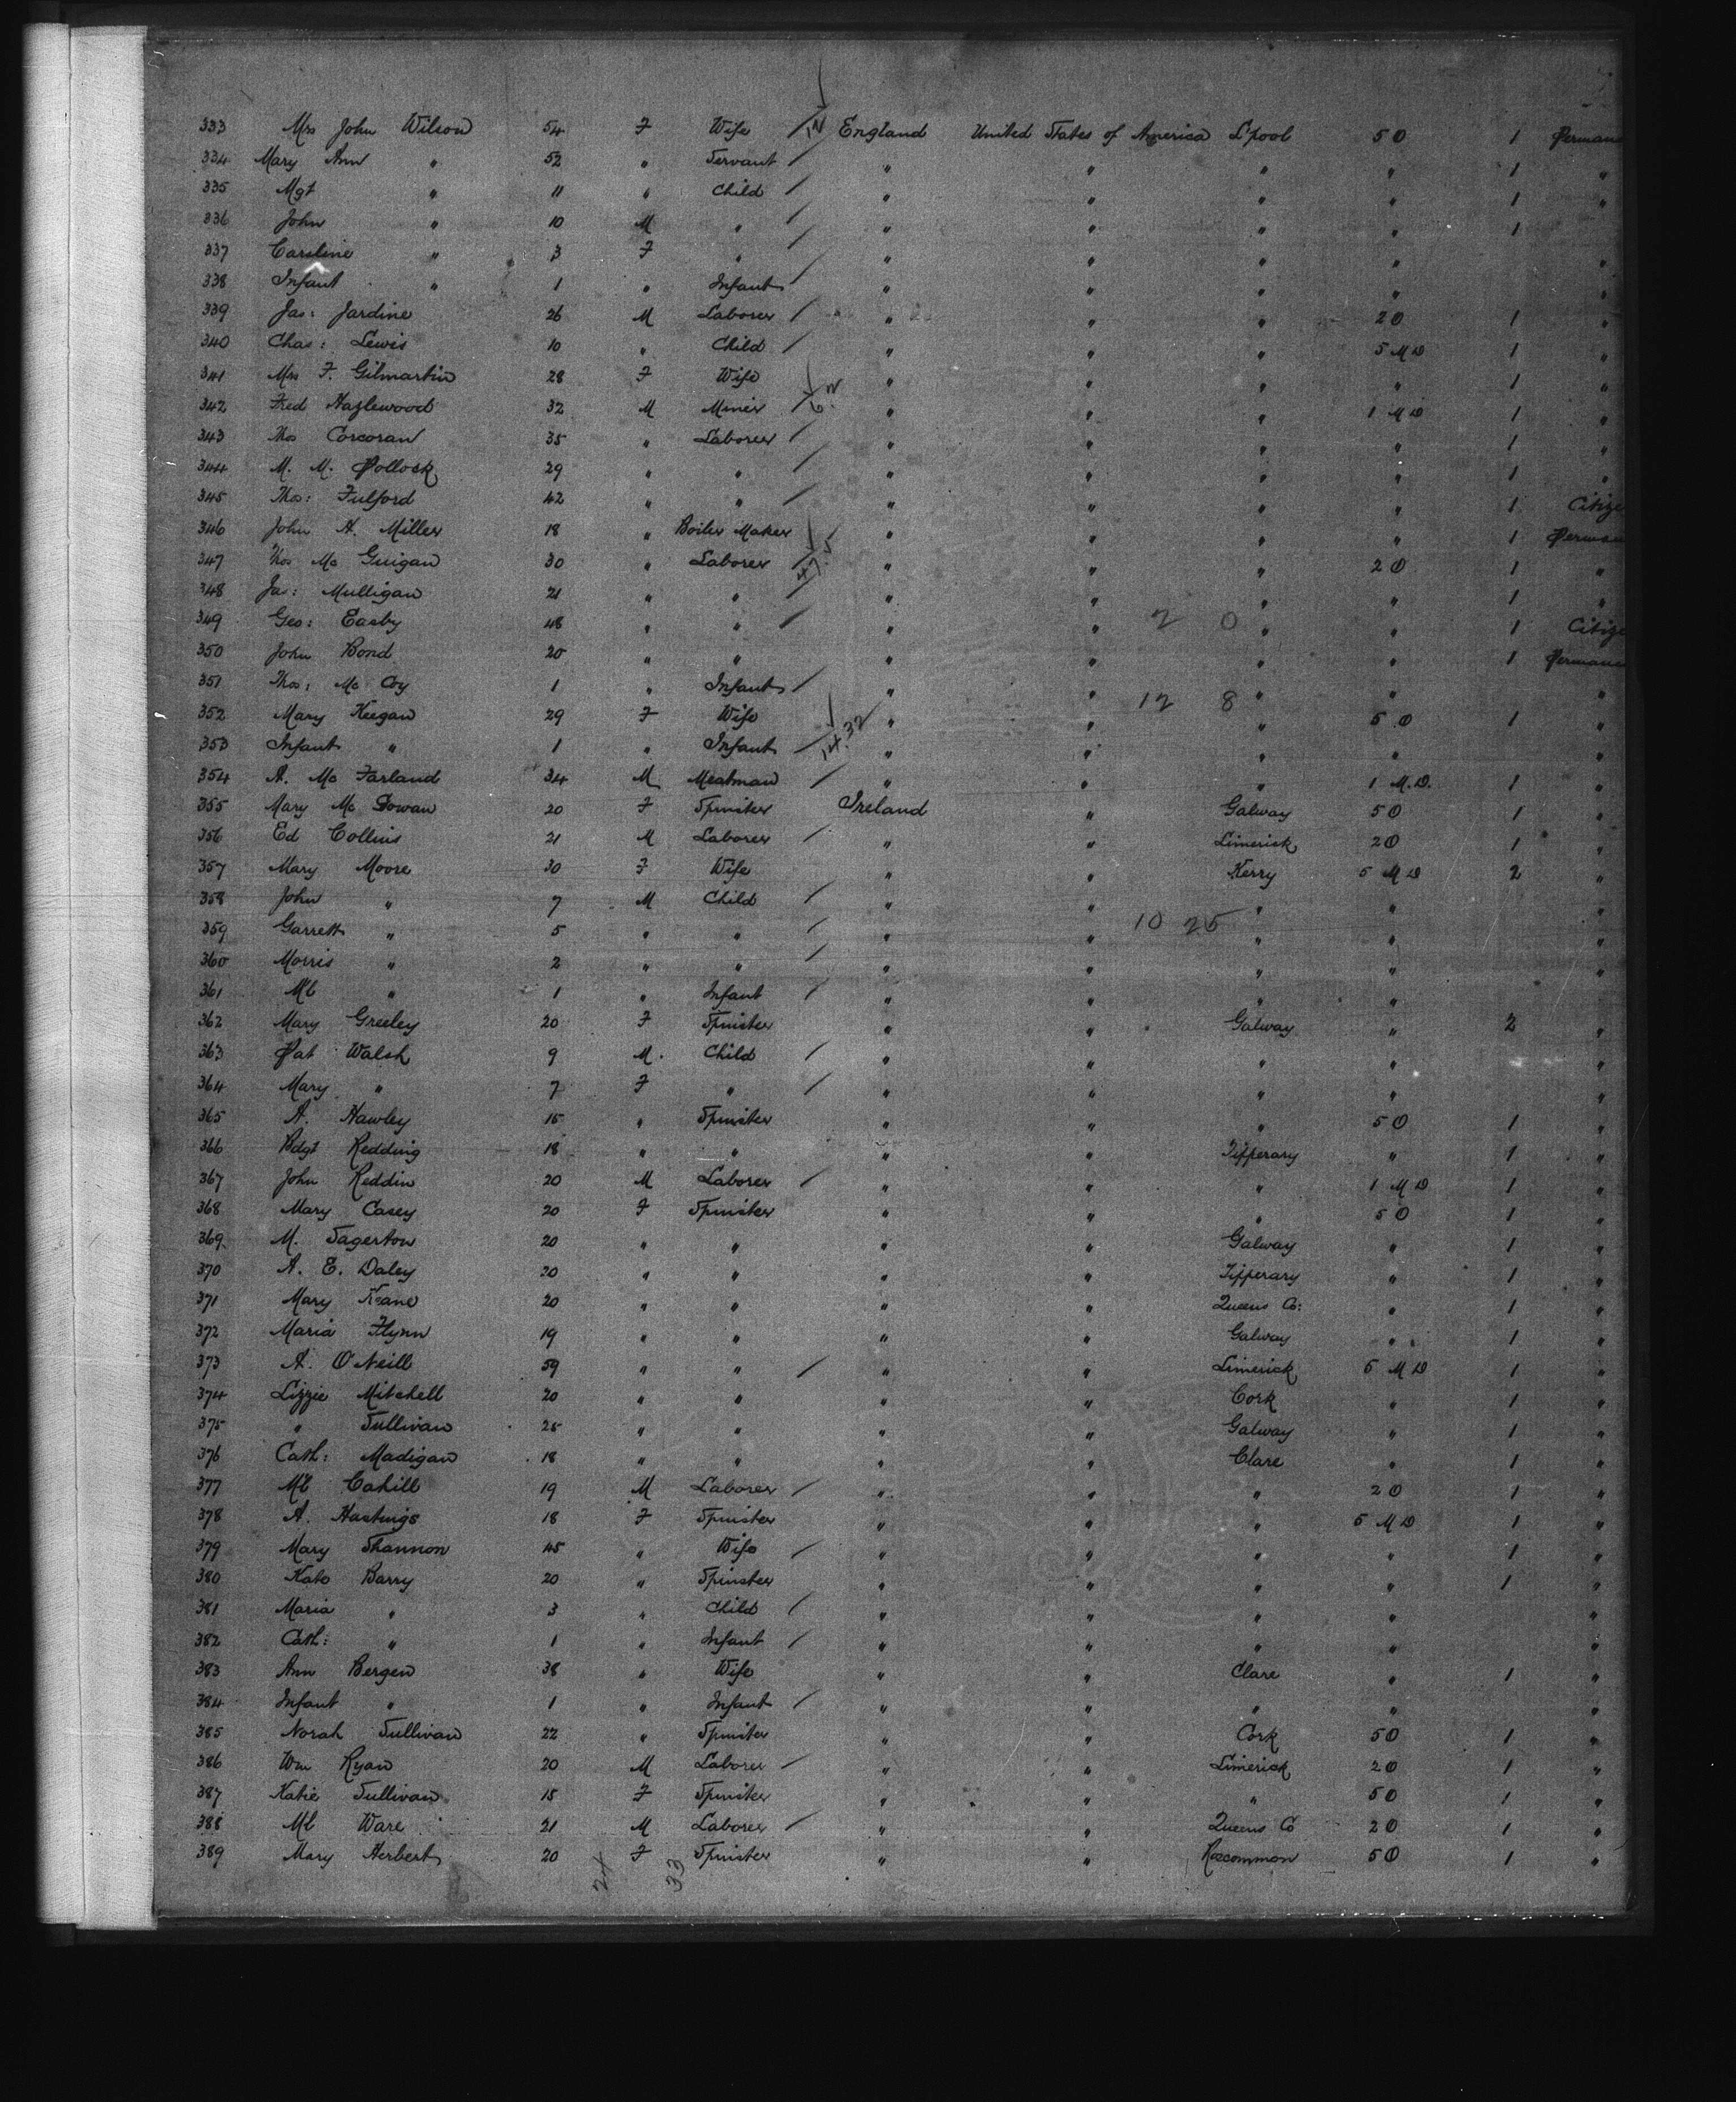 333 Mrs John Wilson 54 F Wife England United States of America L'pool 50 1 Perman
334 Mary Ann " 52 " Servant " " " " 1 "
335 Mgt " 11 " Child " " " " 1 "
336 John " 10 M " " " " " 1
337 Caroline " 3 F " " " " " "
338 Infant " 1 " Infant " " " " "
339 Jas: Jardine 26 M Laborer " " " 20 1 "
340 Chas: Lewis 10 " Child " " " 5 MD 1 "
341 Mrs F. Gilmartin 28 F Wife " " " " 1 "
342 Fred Hazlewood 32 M Miner " " " 1 MD 1 "
343 Thos Corcoran 35 " Laborer " " " " 1 "
344 M. M. Pollock 29 " " " " " " 1 "
345 Thos: Fulford 42 " " " " " " 1 Citize
346 John A. Miller 18 " Boiler Maker " " " " 1 Perman
347 Thos Mc Guigan 30 " Laborer " " " 20 1 "
348 Jas: Mulligan 21 " " " " " " 1 "
349 Geo: Easby 48 " " " " 2 0 " " 1 Citize
350 John Bond 20 " " " " " " 1 Permane
351 Thos: Mc Coy 1 " Infant " " " " "
352 Mary Keegan 29 F Wife " " 12 8 " 50 1 "
353 Infant " 1 " Infant 14.32 " " " "
354 A. Mc Farland 34 M Meatman " " " 1 M.D. 1 "
355 Mary Mc Gowan 20 F Spinster Ireland " Galway 50 1 "
356 Ed Collins 21 M Laborer " " Limerick 20 1 "
357 Mary Moore 30 F Wife " " Kerry 5 MD 2 "
358 John " 7 M Child " " " " "
359 Garrett " 5 " " " " 10 25 " " "
360 Morris " 2 " " " " " " "
361 Ml " 1 " Infant " " " "
362 Mary Greeley 20 F Spinster " " Galway " 2 "
363 Pat Walsh 9 M. Child " " " " "
364 Mary " 7 F " " " " " "
365 A. Hawley 15 " Spinster " " " 50 1 "
366 Bdgt Redding 18 " " " " Tipperary " 1 "
367 John Reddin 20 M Laborer " " " 1 MD 1 "
368 Mary Casey 20 F Spinster " " " 50 1 "
369 M. Sagerton 20 " " " " Galway " 1 "
370 A. E. Daley 20 " " " " Tipperary " 1 "
371 Mary Keane 20 " " " " Queens Co: " 1 "
372 Maria Flynn 19 " " " " Galway " 1 "
373 A. O'Neill 59 " " " " Limerick 5 MD 1 "
374 Lizzie Mitchell 20 " " " " Cork " 1 "
375 " Sullivan 25 " " " " Galway " 1 "
376 Cath: Madigan 18 " " " " Clare " 1 "
377 Ml Cahill 19 M Laborer " " " 20 1 "
378 A. Hastings 18 F Spinster " " " 5 MD 1 "
379 Mary Shannon 45 " Wife " " " " 1 "
380 Kate Barry 20 " Spinster " " " " 1 "
381 Maria " 3 " Child " " " " "
382 Cath: " 1 " Infant " " " " "
383 Ann Bergen 38 " Wife " " Clare " 1 "
384 Infant " 1 " Infant " " " " "
385 Norah Sullivan 22 " Spinster " " Cork 50 1 "
386 Wm Ryan 20 M Laborer " " Limerick 20 1 "
387 Katie Sullivan 15 F Spinster " " " 50 1 "
388 Ml Ware 21 M Laborer " " Queens Co 20 1 "
389 Mary Herbert 20 F Spinster " " Roscommon 50 1 "
24 33